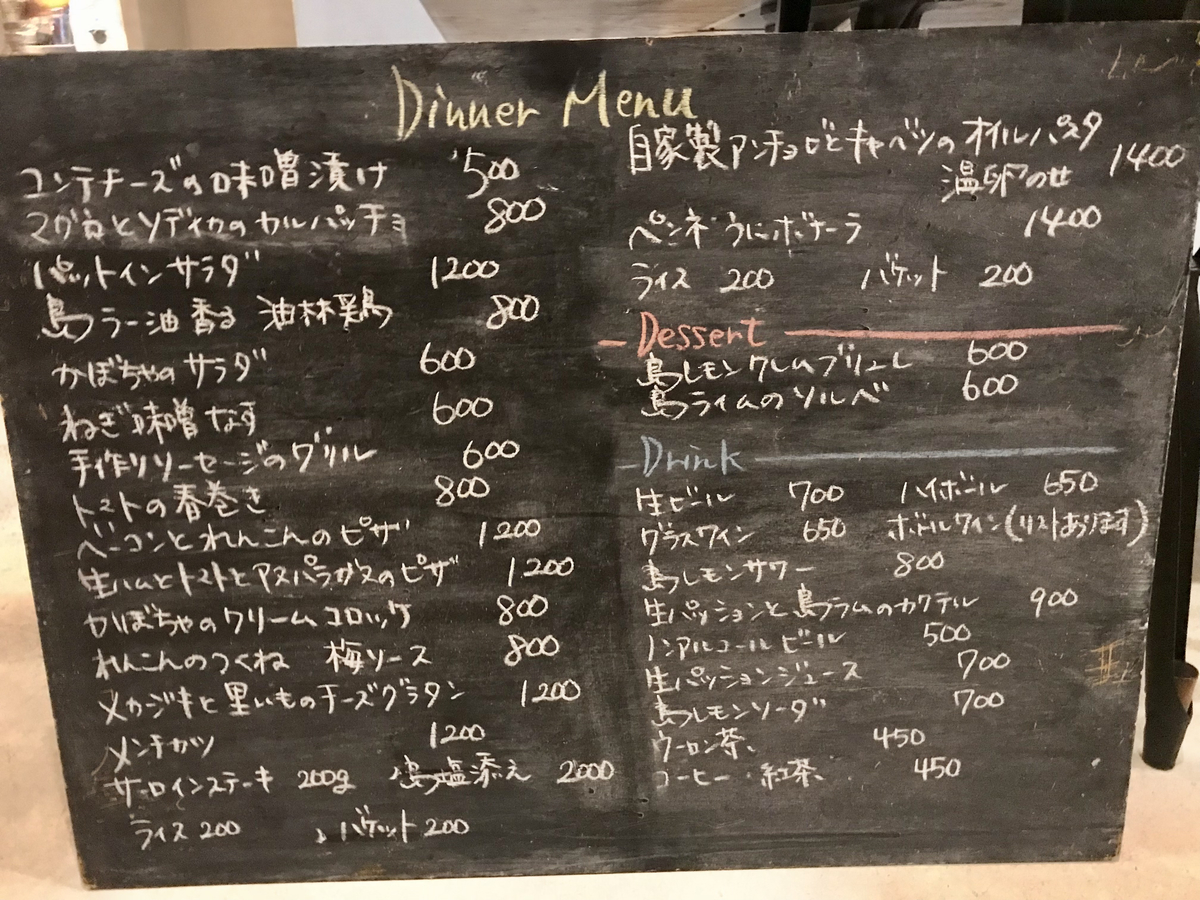 Dinner Menu
コンテチーズの味噌漬け 500
マグロとソディカのカルパッチョ 800
パットインサラダ 1200
島ラー油香る 油淋鶏 800
かぼちゃのサラダ 600
ねぎ味噌なす 600
手作りソーセージのグリル 600
トマトの春巻き 800
ベーコンとれんこんのピザ 1200
生ハムとトマトとアスパラガスのピザ 1200
かぼちゃのクリームコロッケ 800
れんこんのつくね 梅ソース 800
メカジキと里いものチーズグラタン 1200
メンチカツ 1200
サーロインステーキ 200g 島塩添え 2000
ライス 200 バケット 200
自家製アンチョビとキャベツのオイルパスタ 1400
温卵のせ
ペンネ うにボナーラ 1400
ライス 200 バケット 200
Dessert
島レモンクレムブリュレ 600
島ライムのソルベ 600
Drink
生ビール 700 ハイボール 650
グラスワイン 650 ボトルワイン(リストあります)
島レモンサワー 800
生パッションと島ラムのカクテル 900
ノンアルコールビール 500
生パッションジュース 700
島レモンソーダ 700
ウーロン茶、 450
コーヒー・紅茶、 450